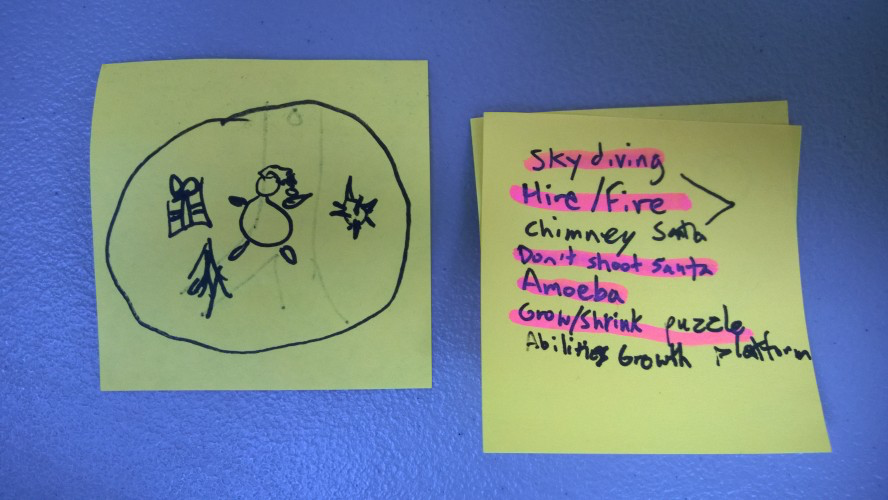 Sky diving
Hire/Fire
Chimney Santa
Don't shoot santa
Amoeba
Grow/Shrink puzzle
Abilities Growth Platform